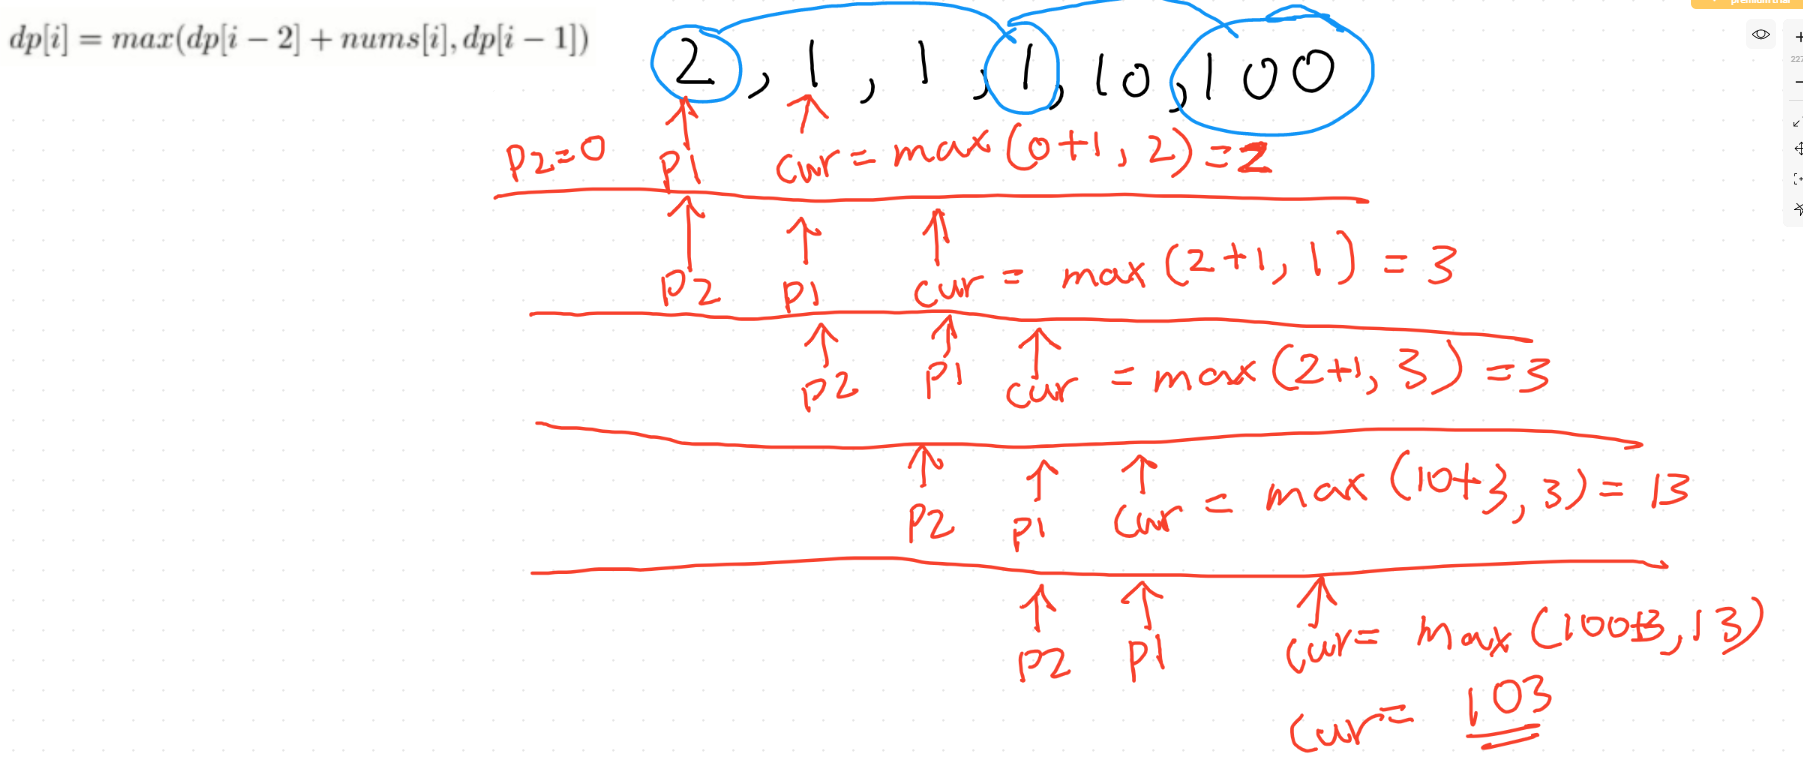 premium trial
dp[i] = max(dp[i − 2] + nums[i], dp[i − 1])
2, 1, 1, 1, 10, 100
P2=0 P1 cur = max (0+1, 2) = 2
P2 P1 cur = max (2+1, 1) = 3
P2 P1 cur = max (2+1, 3) = 3
P2 P1 cur = max (10+3, 3) = 13
P2 P1 cur = max (100+3, 13)
cur = 103